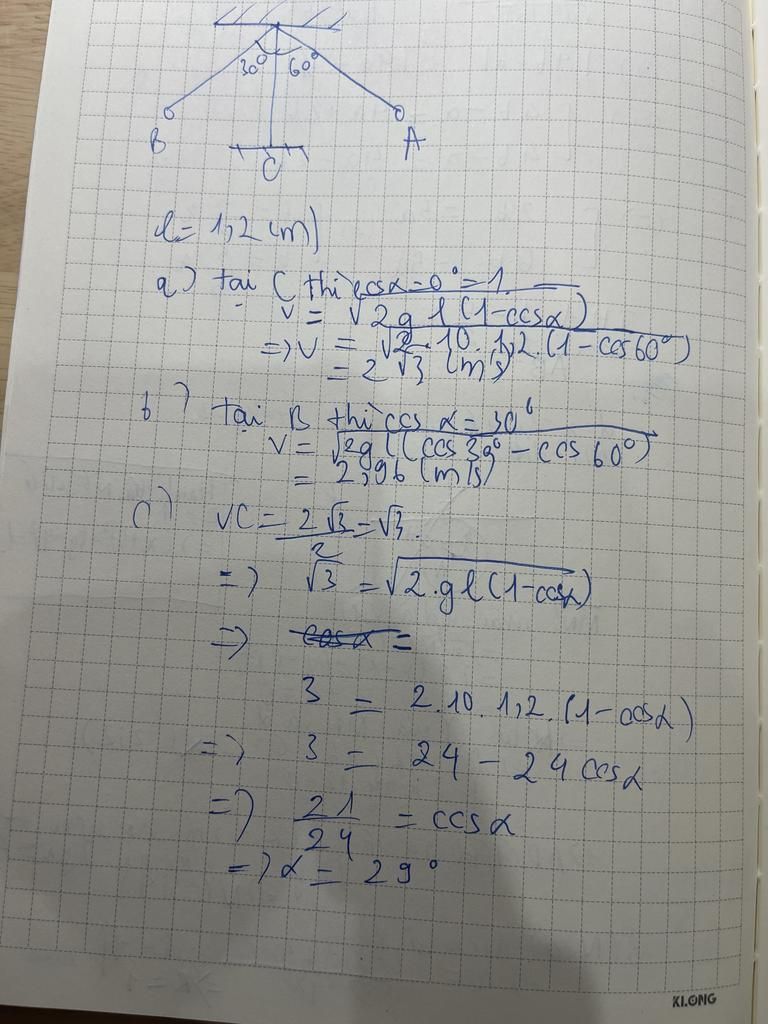 30° 60°
B
A
C
l = 1,2 (m)
a) tại C thì cosα = 0° = 1
v = √2gl(1-cosα)
=> v = √2.10.1,2.(1-cos60°)
= 2√3 (m/s)
b) tại B thì cos α = 30°
v = √2gl(cos 30° - cos 60°)
= 2,96 (m/s)
c) vC = 2√3/2 = √3.
=> √3 = √2.gl(1-cosα)
=> cosα =
3 = 2.10.1,2.(1-cosα)
=> 3 = 24 - 24cosα
=> 21/24 = cosα
=> α = 29°
KLONG